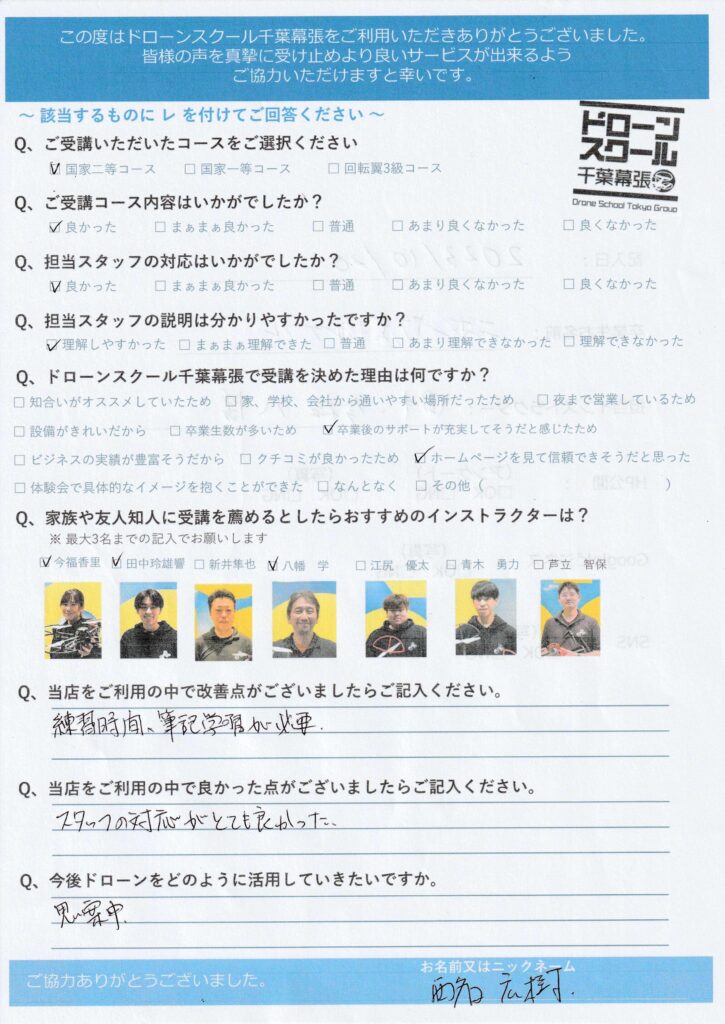 この度はドローンスクール千葉幕張をご利用いただきありがとうございました。
皆様の声を真摯に受け止めより良いサービスが出来るよう
ご協力いただけますと幸いです。
～ 該当するものに レ を付けてご回答ください ～
ドローン
スクール
千葉幕張
Drone School Tokyo Group
Q、ご受講いただいたコースをご選択ください
☑ 国家二等コース □ 国家一等コース □ 回転翼3級コース
Q、ご受講コース内容はいかがでしたか？
☑ 良かった □ まぁまぁ良かった □ 普通 □ あまり良くなかった □ 良くなかった
Q、担当スタッフの対応はいかがでしたか？
☑ 良かった □ まぁまぁ良かった □ 普通 □ あまり良くなかった □ 良くなかった
Q、担当スタッフの説明は分かりやすかったですか？
☑ 理解しやすかった □ まぁまぁ理解できた □ 普通 □ あまり理解できなかった □ 理解できなかった
Q、ドローンスクール千葉幕張で受講を決めた理由は何ですか？
□ 知合いがオススメしていたため □ 家、学校、会社から通いやすい場所だったため □ 夜まで営業しているため
□ 設備がきれいだから □ 卒業生数が多いため ☑ 卒業後のサポートが充実してそうだと感じたため
□ ビジネスの実績が豊富そうだから □ クチコミが良かったため ☑ ホームページを見て信頼できそうだと思った
□ 体験会で具体的なイメージを抱くことができた □ なんとなく □ その他（ ）
Q、家族や友人知人に受講を薦めるとしたらおすすめのインストラクターは？
※ 最大3名までの記入でお願いします
☑ 今福香里 ☑ 田中玲雄響 □ 新井隼也 ☑ 八幡 学 □ 江尻 優太 □ 青木 勇力 □ 芦立 智保
Q、当店をご利用の中で改善点がございましたらご記入ください。
練習時間、筆記学習が必要.
Q、当店をご利用の中で良かった点がございましたらご記入ください。
スタッフの対応がとても良かった.
Q、今後ドローンをどのように活用していきたいですか。
思案中.
ご協力ありがとうございました。
お名前又はニックネーム
西名 広樹.